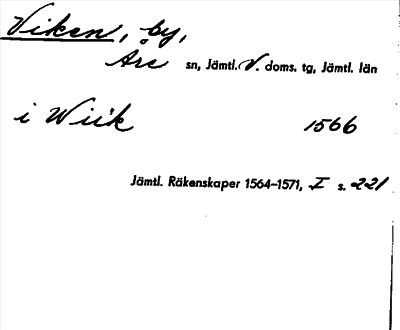 Viken, by,
Åre sn, Jämtl. V. doms. tg, Jämtl. län
i Wiik 1566
Jämtl. Räkenskaper 1564–1571, I s. 221